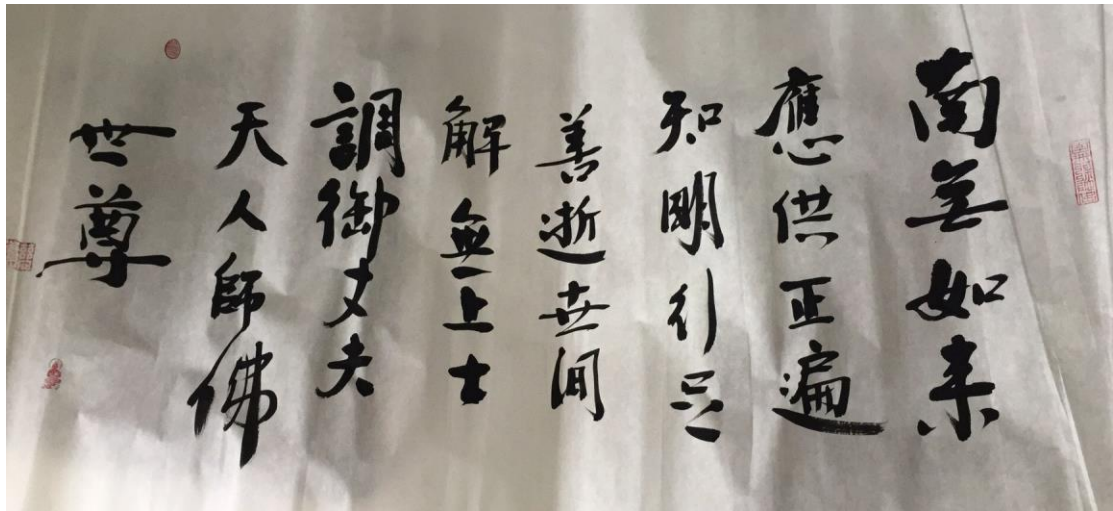 南無如来
應供正遍
知明行足
善逝世间
解無上士
調御丈夫
天人師佛
世尊